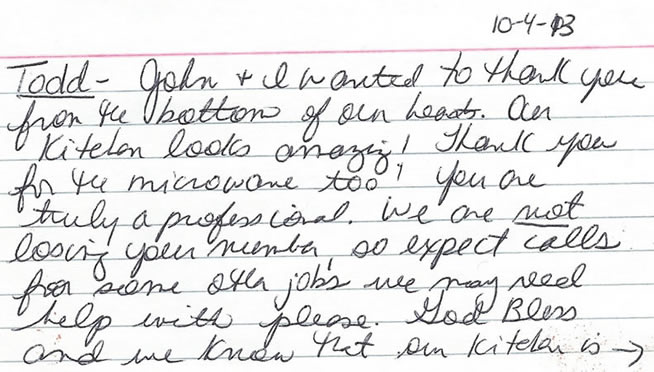 10-4-13
Todd- John + I wanted to thank you
from the bottom of our hearts. Our
Kitchen looks amazing! Thank you
for the microwave too! You are
truly a professional. We are not
losing your number, so expect calls
for some other jobs we may need
help with please. God Bless
and we know that our kitchen is →